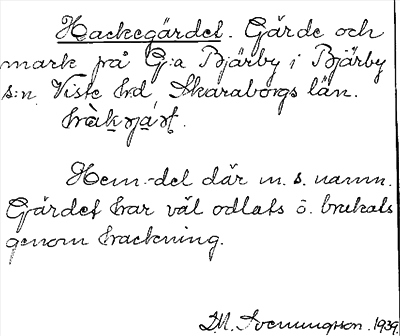 Hackegärdet. Gärde och
mark på G:a Bjärby i Bjärby
s:n Viste hd Skaraborgs län.
Hem.-del där m. s. namn.
Gärdet har väl odlats o. brukats
genom hackning.
M. Svenungsson. 1939.